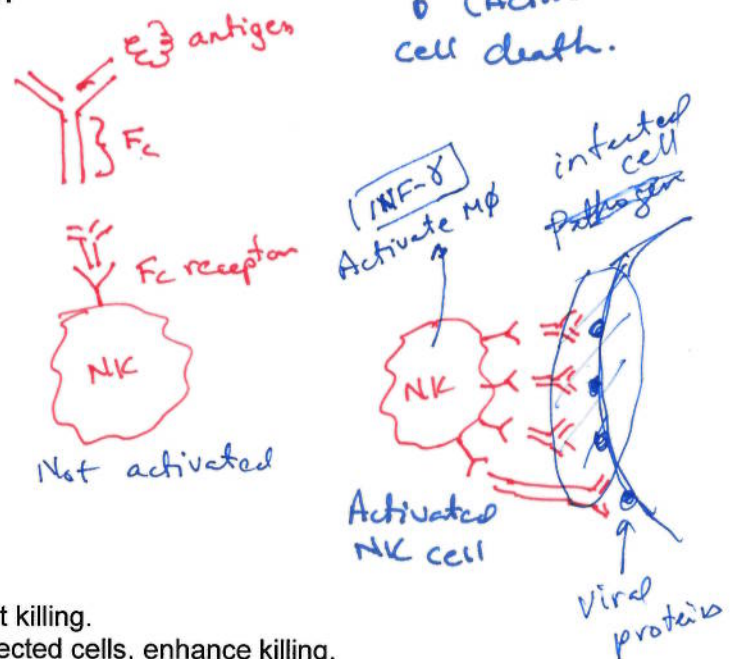 cell death.
antigen
Fc
Fc receptor
NK
Not activated
INF-γ
Activate Mφ
infected
cell
pathogen
NK
Activated
NK cell
viral
proteins
t killing.
ected cells, enhance killing.